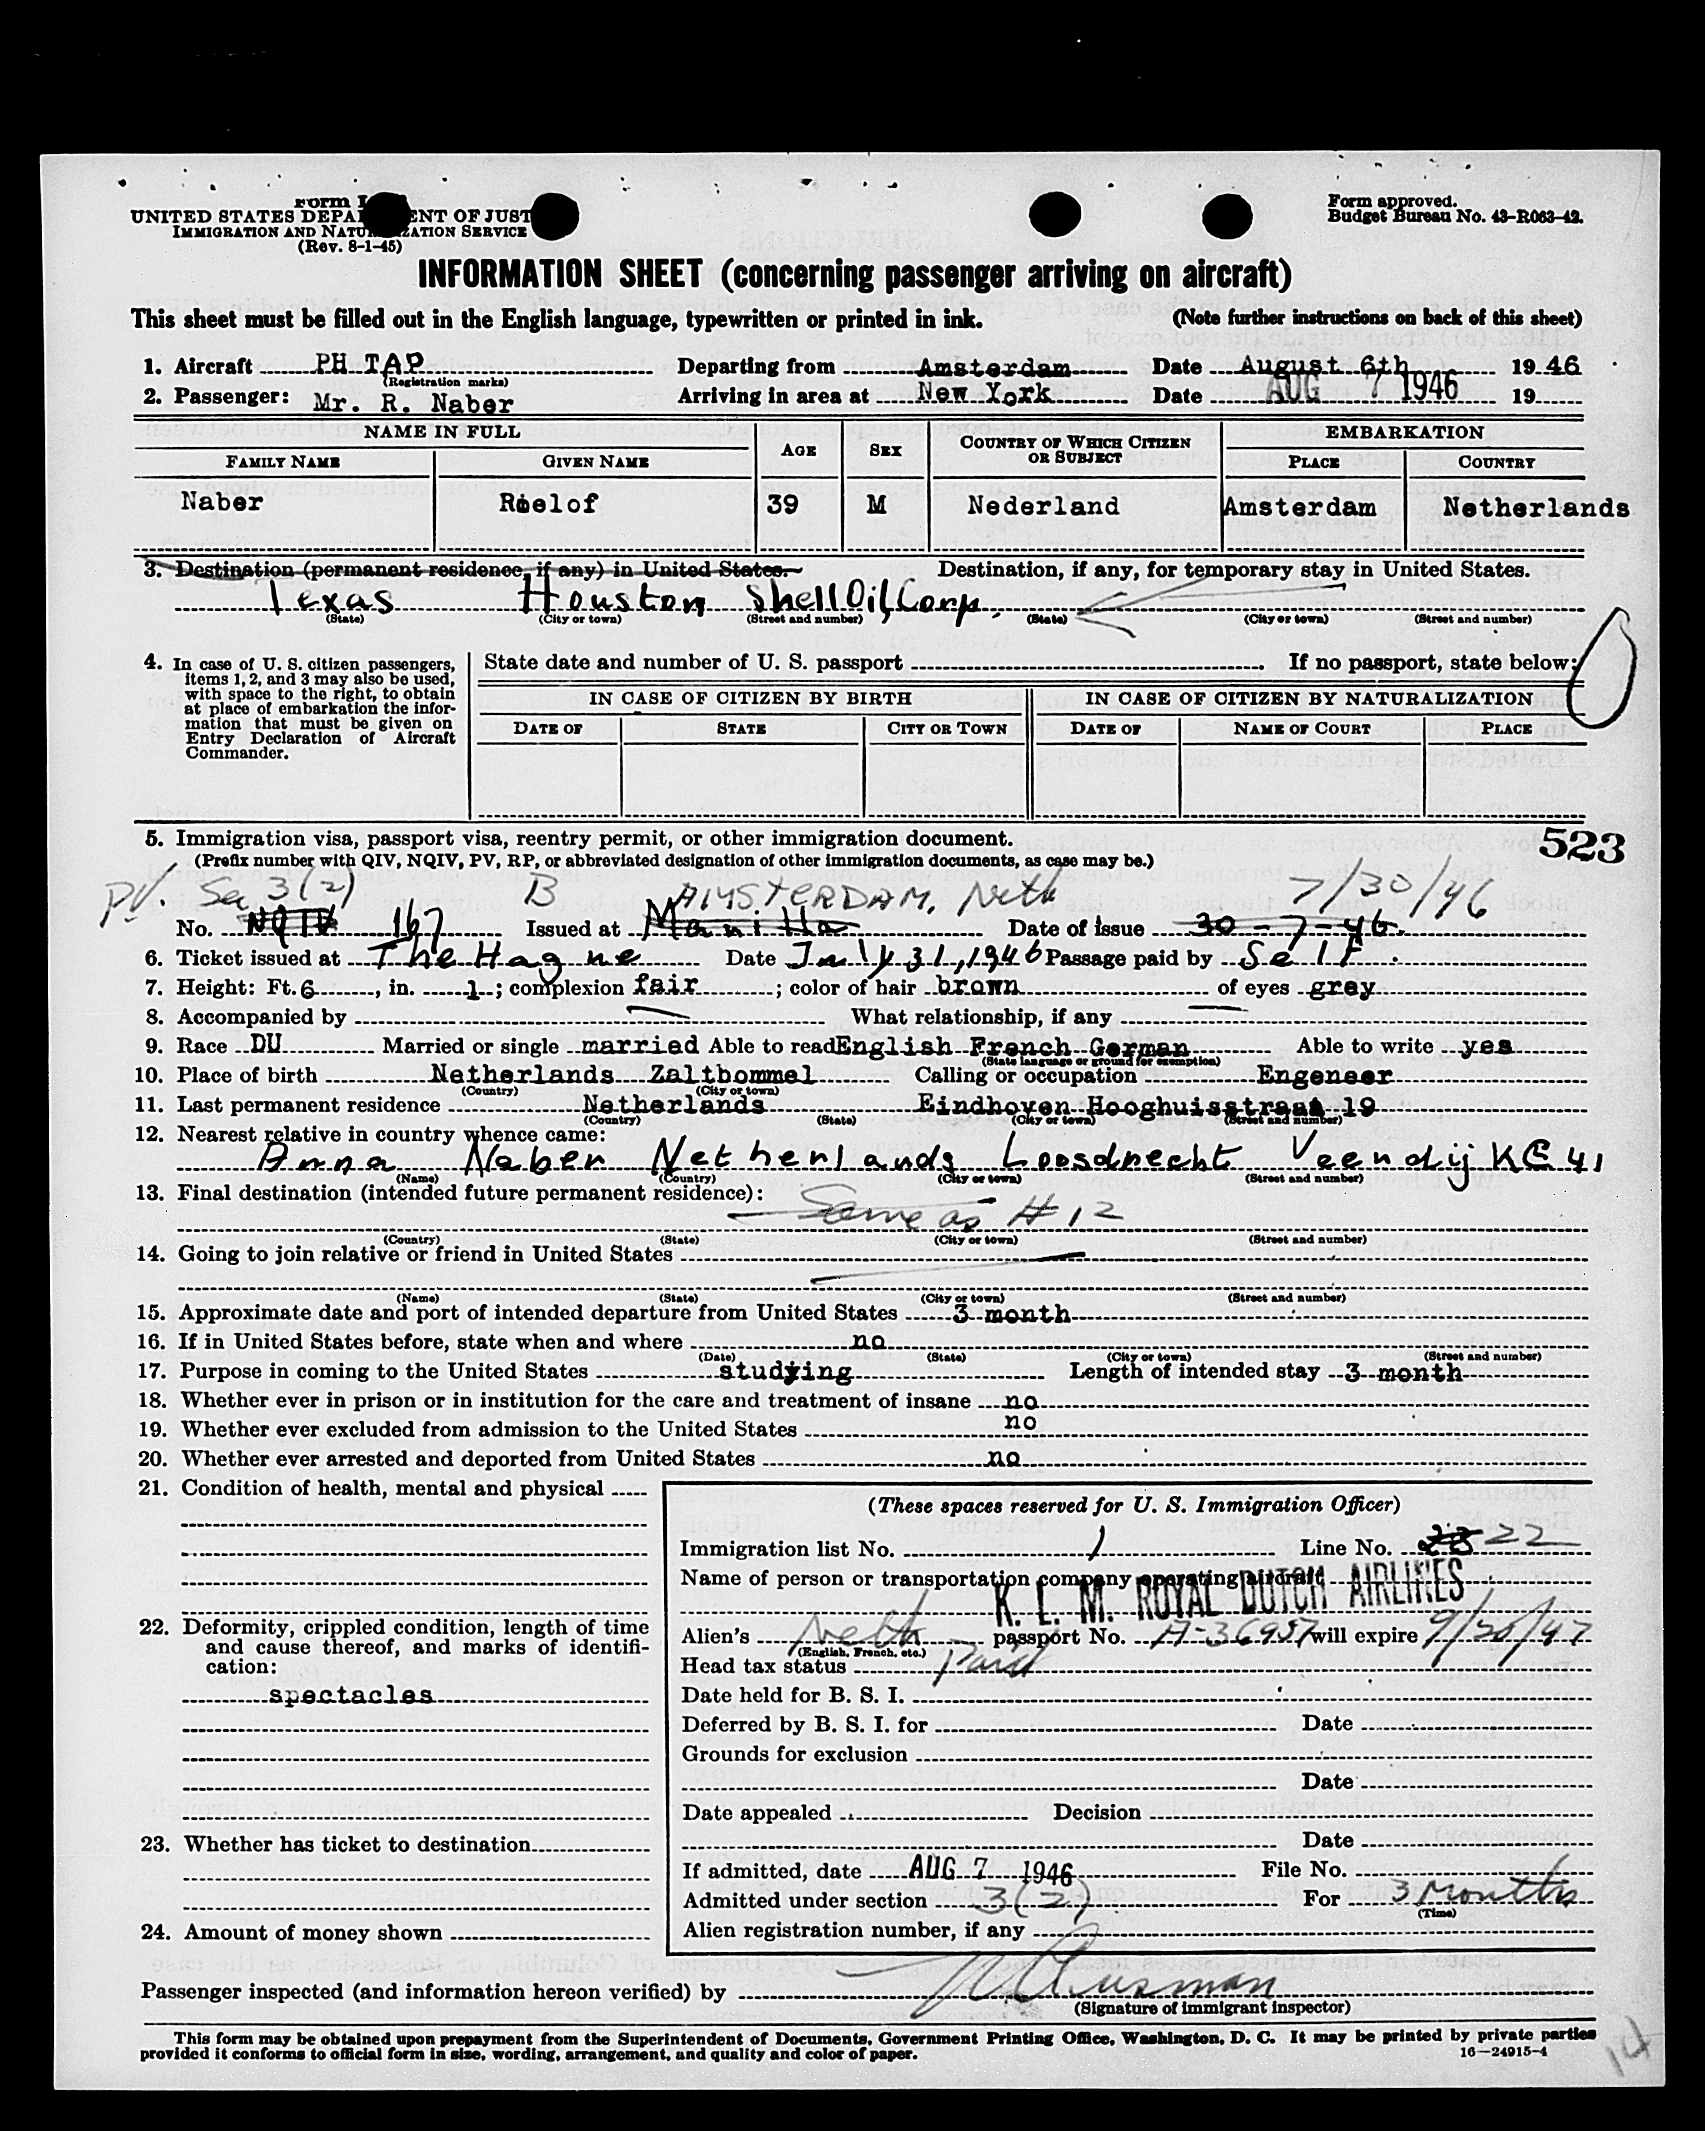 Form I
UNITED STATES DEPA ENT OF JUST
IMMIGRATION AND NATU ZATION SERVICE
(Rev. 8-1-45)
Form approved.
Budget Bureau No. 43-R063-42.
INFORMATION SHEET (concerning passenger arriving on aircraft)
This sheet must be filled out in the English language, typewritten or printed in ink. (Note further instructions on back of this sheet)
1. Aircraft PH TAP Departing from Amsterdam Date August 6th 1946
(Registration marks)
2. Passenger: Mr. R. Naber Arriving in area at New York Date AUG 7 1946 19
NAME IN FULL AGE SEX COUNTRY OF WHICH CITIZEN OR SUBJECT EMBARKATION
FAMILY NAME GIVEN NAME PLACE COUNTRY
Naber Roelof 39 M Nederland Amsterdam Netherlands
3. Destination (permanent residence, if any) in United States. Destination, if any, for temporary stay in United States.
Texas Houston Shell Oil Corp.
(State) (City or town) (Street and number) (State) (City or town) (Street and number)
4. In case of U. S. citizen passengers,
items 1, 2, and 3 may also be used,
with space to the right, to obtain
at place of embarkation the infor-
mation that must be given on
Entry Declaration of Aircraft
Commander.
State date and number of U. S. passport . If no passport, state below:
IN CASE OF CITIZEN BY BIRTH IN CASE OF CITIZEN BY NATURALIZATION
DATE OF STATE CITY OR TOWN DATE OF NAME OF COURT PLACE
5. Immigration visa, passport visa, reentry permit, or other immigration document. 523
(Prefix number with QIV, NQIV, PV, RP, or abbreviated designation of other immigration documents, as case may be.)
PV. Sec 3(2) B AMSTERDAM, Neth 7/30/46
No. NQIV 167 Issued at Manilla Date of issue 30-7-46.
6. Ticket issued at The Hague Date July 31, 1946 Passage paid by Self.
7. Height: Ft. 6, in. 1; complexion fair; color of hair brown of eyes grey
8. Accompanied by What relationship, if any
9. Race DU Married or single married Able to read English French German Able to write yes
(State language or ground for exemption)
10. Place of birth Netherlands Zaltbommel Calling or occupation Engeneer
(Country) (City or town)
11. Last permanent residence Netherlands Eindhoven Hooghuisstraat 19
(Country) (State) (City or town) (Street and number)
12. Nearest relative in country whence came:
Anna Naber Netherlands Loosdrecht Veendijk G 41
(Name) (Country) (City or town) (Street and number)
13. Final destination (intended future permanent residence):
Same as #12
(Country) (State) (City or town) (Street and number)
14. Going to join relative or friend in United States
(Name) (State) (City or town) (Street and number)
15. Approximate date and port of intended departure from United States 3 month
16. If in United States before, state when and where no
(Date) (State) (City or town) (Street and number)
17. Purpose in coming to the United States studying Length of intended stay 3 month
18. Whether ever in prison or in institution for the care and treatment of insane no
19. Whether ever excluded from admission to the United States no
20. Whether ever arrested and deported from United States no
21. Condition of health, mental and physical
22. Deformity, crippled condition, length of time
and cause thereof, and marks of identifi-
cation:
spectacles
23. Whether has ticket to destination
24. Amount of money shown
(These spaces reserved for U. S. Immigration Officer)
Immigration list No. 1 Line No. 22
Name of person or transportation company operating aircraft
K. L. M. ROYAL DUTCH AIRLINES
Alien's Neth passport No. A-36957 will expire 9/20/47
(English, French, etc.)
Head tax status Paid
Date held for B. S. I.
Deferred by B. S. I. for Date
Grounds for exclusion
Date
Date appealed Decision
Date
If admitted, date AUG 7 1946 File No.
Admitted under section 3(2) For 3 Months
(Time)
Alien registration number, if any
Passenger inspected (and information hereon verified) by
(Signature of immigrant inspector)
This form may be obtained upon prepayment from the Superintendent of Documents, Government Printing Office, Washington, D. C. It may be printed by private parties
provided it conforms to official form in size, wording, arrangement, and quality and color of paper. 16—24915-4
14